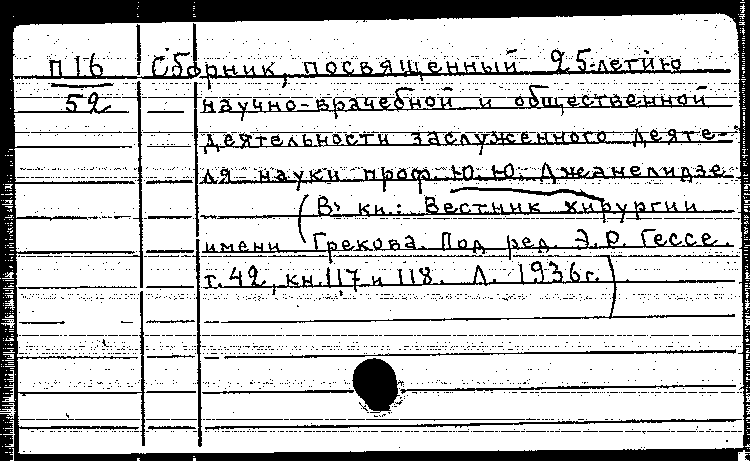 П 16 Сборник, посвященный 25-летию
52 научно-врачебной и общественной
деятельности заслуженного деяте-
ля науки проф. Ю. Ю. Джанелидзе
(В кн.: Вестник хирургии
имени Грекова. Под ред. Э. Р. Гессе.
т. 42, кн. 117 и 118. Л. 1936г.)